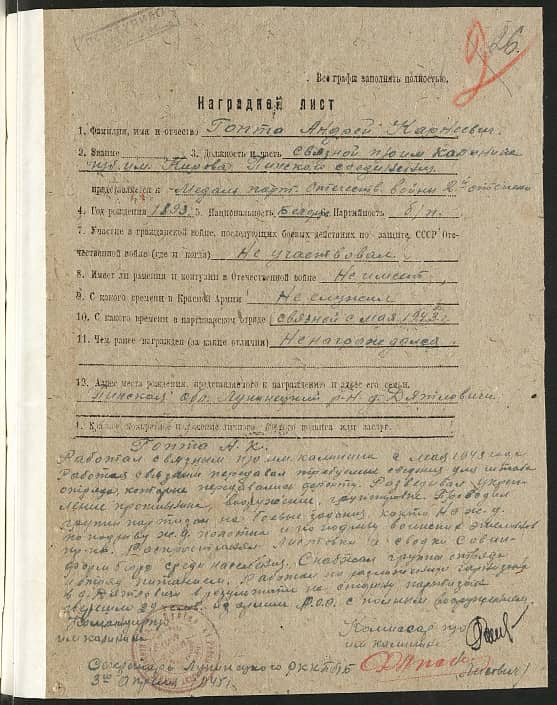 26.
Все графы заполнять полностью.
Наградной лист
1. Фамилия, имя и отчество Гопта Андрей Карнеевич
2. Звание 3. Должность и часть связной п/о им. Калинина
п/бр. им. Кирова Пинского соединения
представляется к Медаль парт. Отечеств. войны 2й степени
4. Год рождения 1893 5. Национальность Белорус Партийность б/п.
7. Участие в гражданской войне, последующих боевых действиях по защите СССР Оте-
чественной войне (где и когда) Не участвовал
8. Имеет ли ранения и контузии в Отечественной войне Не имеет
9. С какого времени в Красной Армии Не служил
10. С какого времени в партизанском отряде связной с мая 1943 г.
11. Чем ранее награжден (за какие отличия) Не награждался
12. Адрес места рождения, представляемого к награждению и адрес его семьи.
Пинская обл. Лунинецкий р-н д. Дятловичи
1. Краткое конкретное изложение личного боевого подвига или заслуг.
Гопта А. К.
Работал связным п/о им. Калинина с мая 1943 года
Работая связным передавал требуемые сведения для штаба
отряда, которые передавались фронту. Разведывал укреп-
ление противника, вооружение, группировки. Проводил
группы партизан на боевые задания, как то на ж.д.
по подрыву ж.д. полотна и по подрыву воинских эшелонов
пр-ка. Распространял листовки и сводки Совин-
формбюро среди населения. Снабжал группы отряда
питанием. Работал по разложению гарнизона
в д. Дятловичи в результате на сторону партизан
перешло 29 чел. из армии с полным вооружением.
Командир п/о
им. Калинина
Комиссар п/о
им. Калинина
Секретарь Лунинецкого РК КП/б/Б
3го апреля